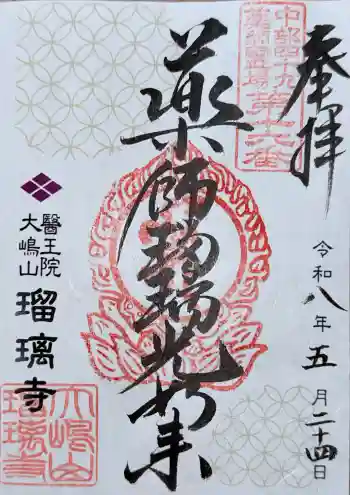 奉拝
中部四十九
薬師霊場
第十六番
令和八年五月二十四日
薬師瑠璃光如来
醫王院
大嶋山
瑠璃寺
大嶋山
瑠璃寺